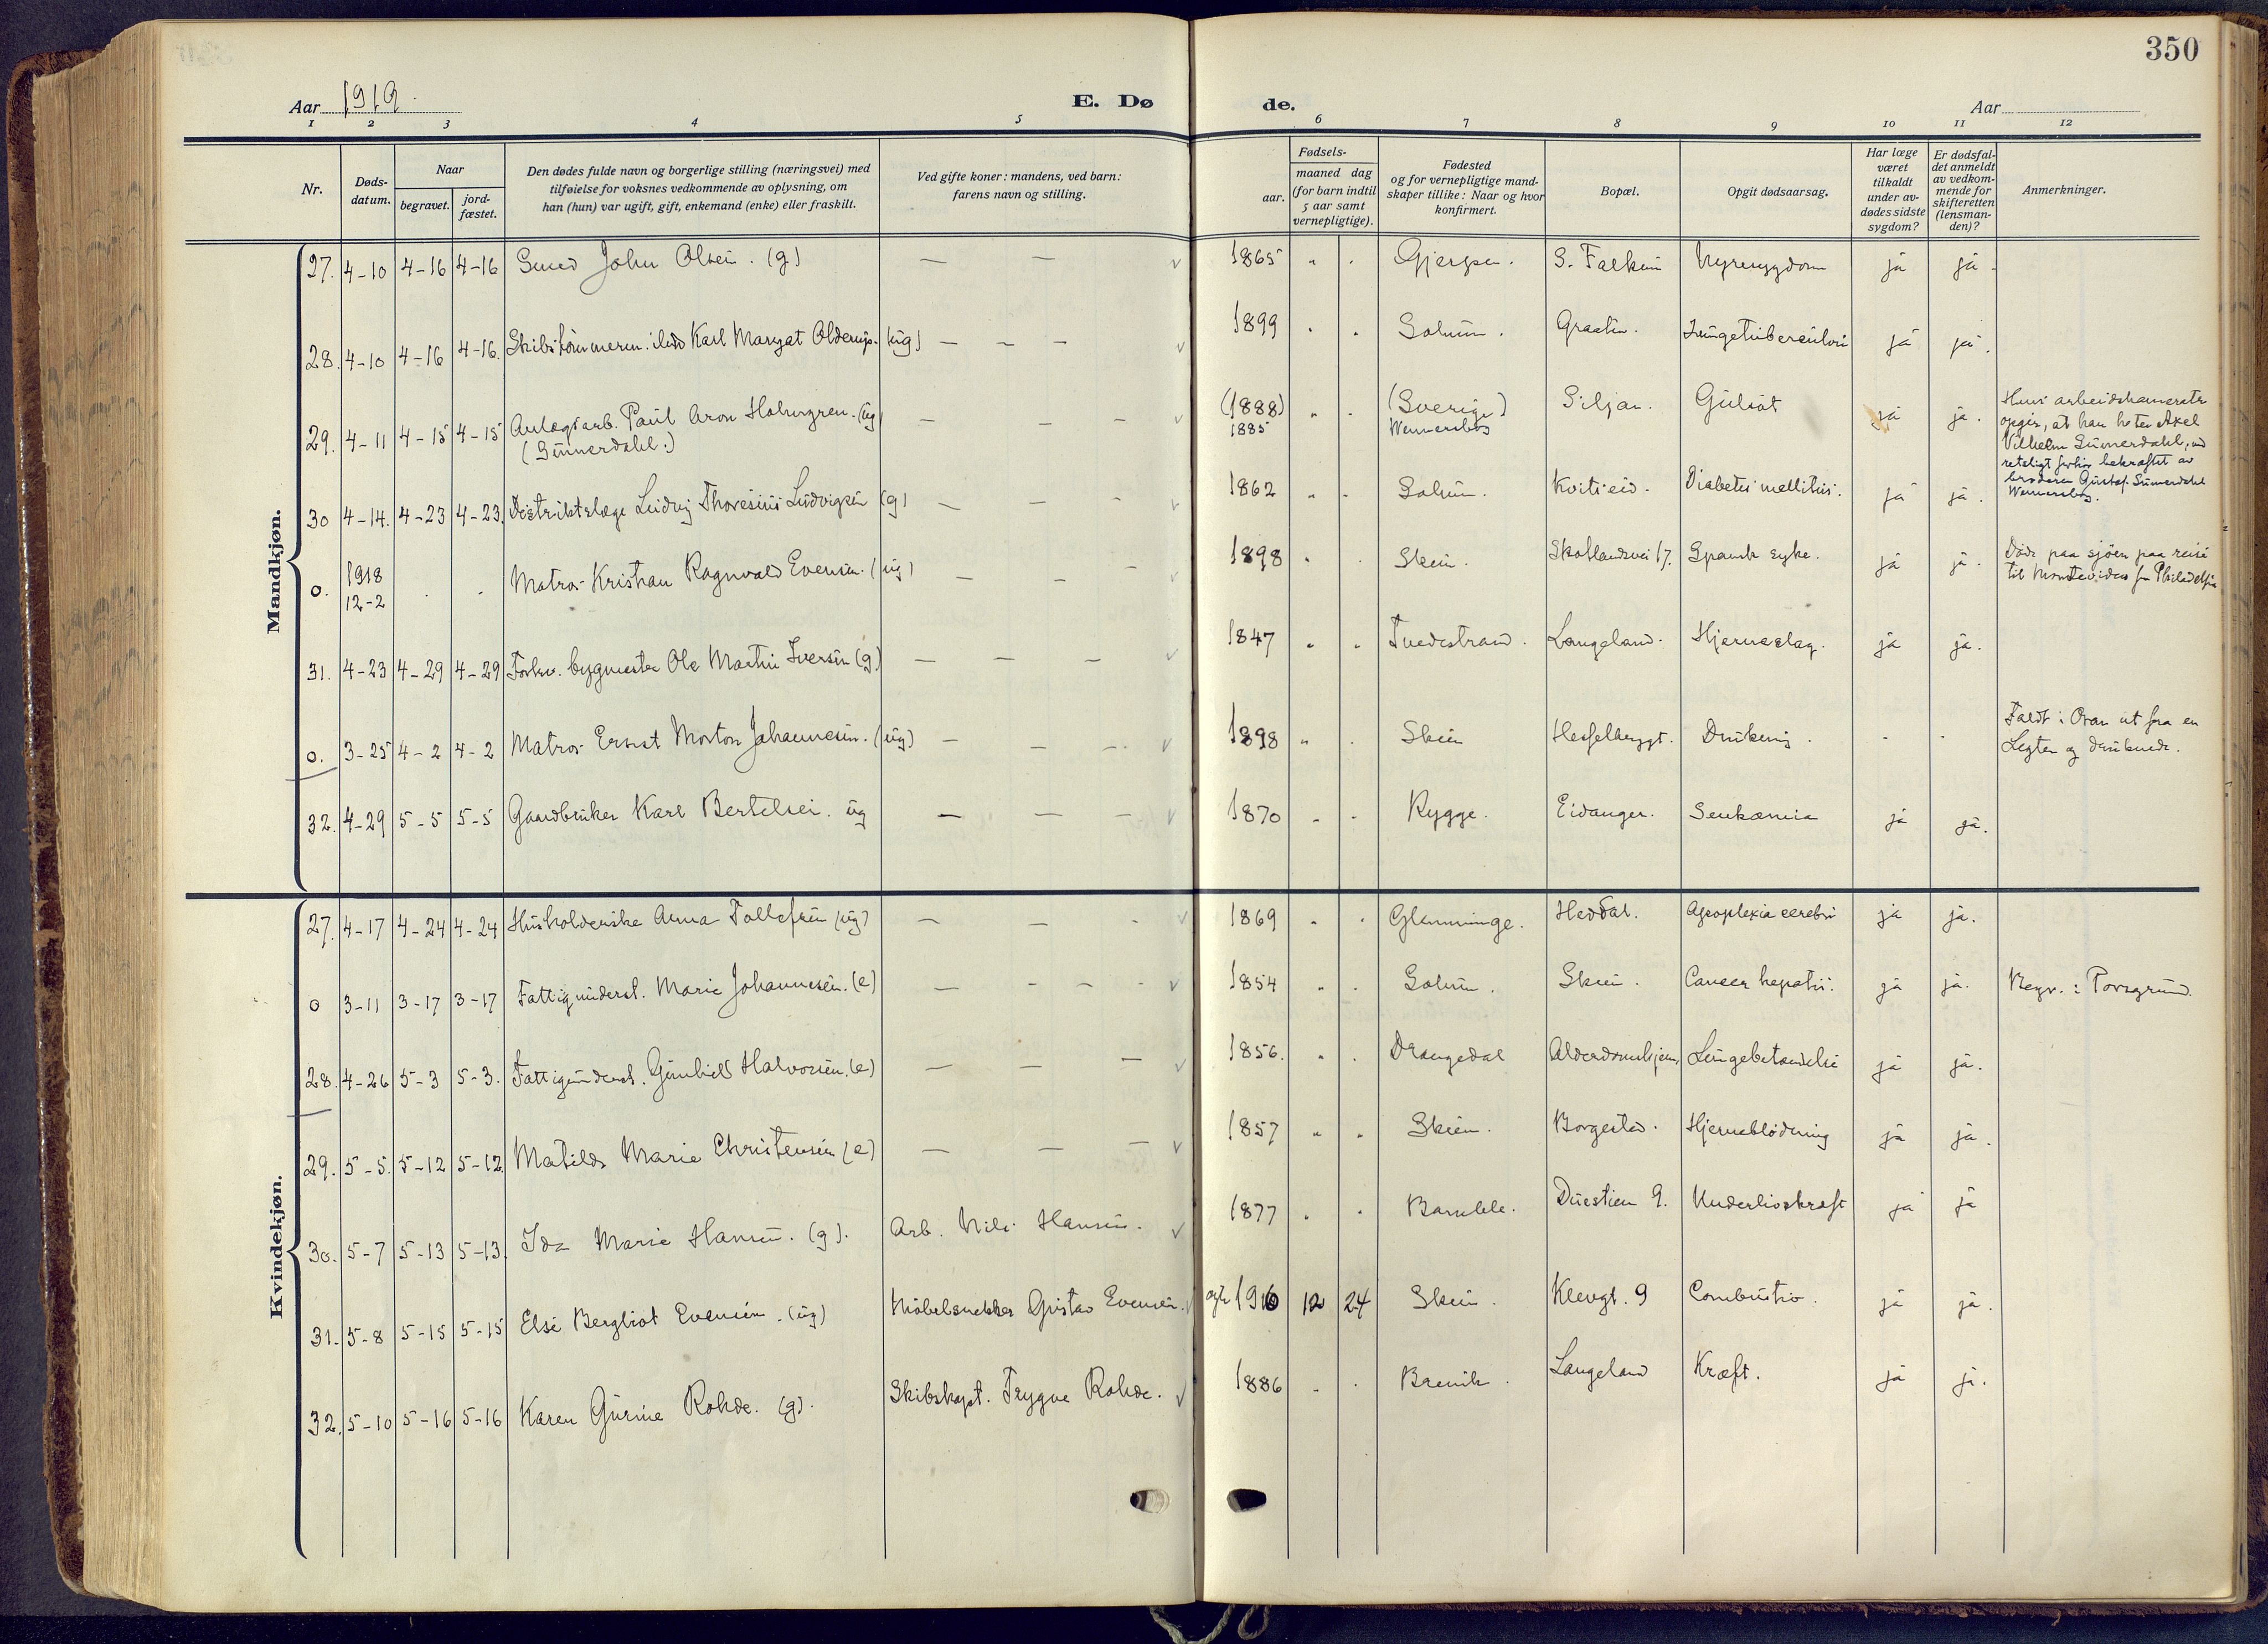 350
Aar 1919. E. Dø de. Aar
1 2 3 4 5 6 7 8 9 10 11 12
Nr.
Døds-datum.
Naar
begravet.
jord-fæstet.
Den dødes fulde navn og borgerlige stilling (næringsvei) med
tilføielse for voksnes vedkommende av oplysning, om
han (hun) var ugift, gift, enkemand (enke) eller fraskilt.
Ved gifte koner: mandens, ved barn:
farens navn og stilling.
Fødsels-
aar.
maaned dag
(for barn indtil
5 aar samt
vernepligtige).
Fødested
og for vernepligtige mand-
skaper tillike: Naar og hvor
konfirmert.
Bopæl.
Opgit dødsaarsag.
Har læge
været
tilkaldt
under av-
dødes sidste
sygdom?
Er dødsfal-
det anmeldt
av vedkom-
mende for
skifteretten
(lensman-
den)?
Anmerkninger.
Mandkjøn.
27. 4-10 4-16 4-16 Smed John Olsen. (g) — — 1865 Gjerpen. S. Falkum Nyresygdom ja ja.
28. 4-10 4-16 4-16. Karl Maryat Olderup. (ug) — — — 1899 Solum. Graaten. Lungetuberculose ja ja.
29. 4-11 4-15 4-15 Anlægsarb. Paul Aron Holmgren. (ug) — — — (1888) (Sverige) Siljan. Gulsot ja ja.
(Sunnerdahl.) 1885 Wennersborg
Hans arbeidskamerater
opgir, at han heter Axel
Vilhelm Sunnerdahl, ved
retsligt forhør bekræftet av
broderen Gustaf Sunnerdahl
Wennersborg.
30 4-14. 4-23 4-23. Distriktslæge Ludvig Thoresius Ludvigsen (g) — — — 1862 Solum. Kvitseid. Diabetes mellitus. ja ja.
0. 1918 12-2 Matros Kristian Ragnvald Evensen. (ug) — — — 1898 Skien. Skotlandsvei 17. Spansk syke. ja ja.
Døde paa sjøen paa reise
til Montevideo fra Philadelphia
31. 4-23 4-29 4-29 Forhv. bygmester Ole Martin Iversen (g) — — — 1847 Tvedestrand. Langeland. Hjerneslag. ja ja.
0. 3-25 4-2 4-2 Matros Ernst Morton Johannesen. (ug) — — — 1898 Skien Hesselberggt. Drukning.
Faldt i Oran ut fra en
Legter og druknede.
32. 4-29 5-5 5-5 Gaardbruker Karl Bertelsen. ug — — — 1870 Rygge. Eidanger. ja ja.
Kvindekjøn.
27. 4-17 4-24 4-24 Husholderske Anna Tollefsen (ug) — — 1869 Glemminge. Heddal. Apoplexia cerebri ja ja.
0 3-11 3-17 3-17 Fattigunderst. Marie Johannesen. (e) — 1854 Solum. Skien. Cancer hepatis. ja ja. Begr. : Porsgrund.
28. 4-26 5-3 5-3. Fattigunderst. Gunhild Halvorsen. (e) — — — 1856. Drangedal Alderdomshjem. Lungebetændelse ja ja.
29. 5-5. 5-12 5-12. Matilde Marie Christensen (e) — — — 1857 Skien. Borgestad. Hjerneblødning ja ja.
30. 5-7 5-13 5-13. Ida Marie Hansen. (g). Arb. Nils Hansen. 1877 Bamble. Duestien 9. Underlivskræft ja ja
31. 5-8 5-15 5-15 Else Bergliot Evensen. (ug) Møbelsnekker Gustav Evensen. 1916 12 24 Skien. Klevgt. 9 Combustio. ja ja.
32. 5-10 5-16 5-16 Karen Gurine Rohde. (g). Skibskapt. Trygve Rohde. 1886 Brevik. Langeland Kræft. ja ja.